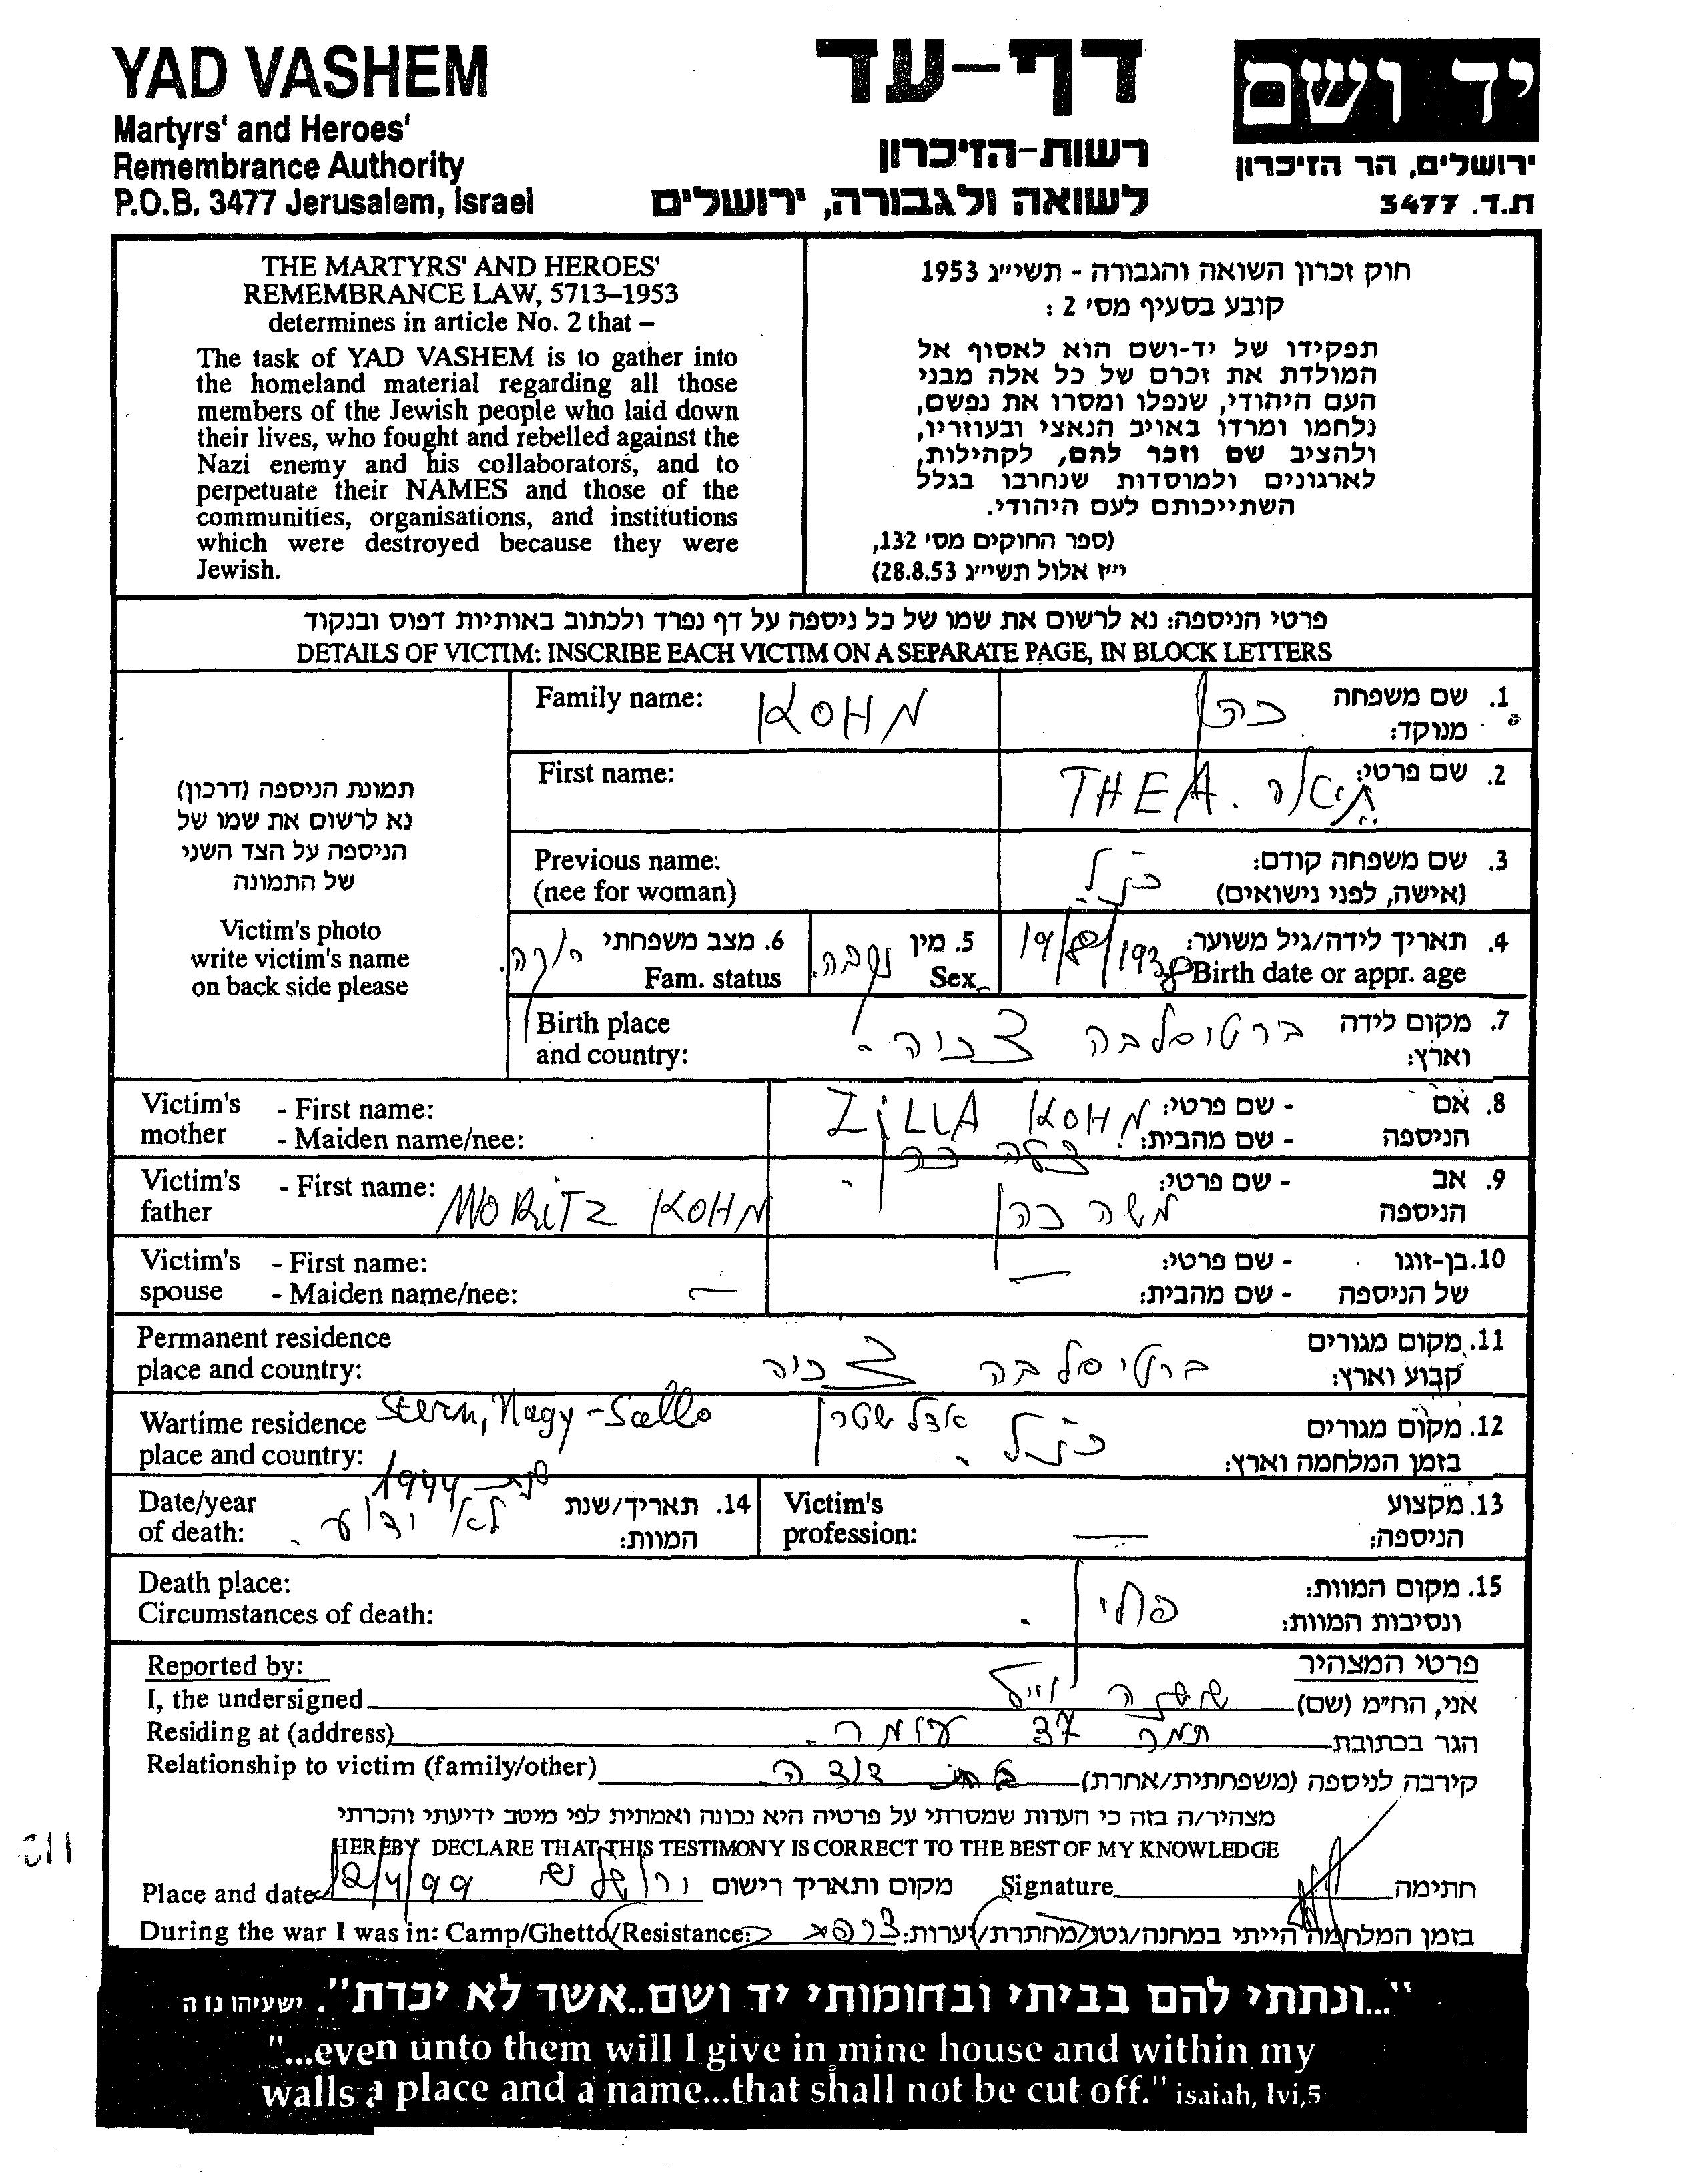 YAD VASHEM
Martyrs' and Heroes'
Remembrance Authority
P.O.B. 3477 Jerusalem, Israel
דף-עד
רשות-הזיכרון
לשואה ולגבורה, ירושלים
יד ושם
ירושלים, הר הזיכרון
ת.ד. 3477
THE MARTYRS' AND HEROES'
REMEMBRANCE LAW, 5713–1953
determines in article No. 2 that –
The task of YAD VASHEM is to gather into
the homeland material regarding all those
members of the Jewish people who laid down
their lives, who fought and rebelled against the
Nazi enemy and his collaborators, and to
perpetuate their NAMES and those of the
communities, organisations, and institutions
which were destroyed because they were
Jewish.
חוק זכרון השואה והגבורה - תשי״ג 1953
קובע בסעיף מס׳ 2 :
תפקידו של יד-ושם הוא לאסוף אל
המולדת את זכרם של כל אלה מבני
העם היהודי, שנפלו ומסרו את נפשם,
נלחמו ומרדו באויב הנאצי ובעוזריו,
ולהציב שם וזכר להם, לקהילות,
לארגונים ולמוסדות שנחרבו בגלל
השתייכותם לעם היהודי.
(ספר החוקים מס׳ 132,
י״ז אלול תשי״ג 28.8.53)
פרטי הניספה: נא לרשום את שמו של כל ניספה על דף נפרד ולכתוב באותיות דפוס ובנקוד
DETAILS OF VICTIM: INSCRIBE EACH VICTIM ON A SEPARATE PAGE, IN BLOCK LETTERS
תמונת הניספה (דרכון)
נא לרשום את שמו של
הניספה על הצד השני
של התמונה
Victim's photo
write victim's name
on back side please
Family name: KOHN כהן 1. שם משפחה
מנוקד:
First name: THEA. תיאה 2. שם פרטי:
Previous name: 3. שם משפחה קודם:
(nee for woman) כנ״ל (אישה, לפני נישואים)
6. מצב משפחתי 5. מין נקבה. 19/8/1938 4. תאריך לידה/גיל משוער:
Fam. status Sex Birth date or appr. age
Birth place ברטיסלבה צכיה. 7. מקום לידה
and country: וארץ:
Victim's - First name: ZiLLA KOHN - שם פרטי: 8. אם
mother - Maiden name/nee: צילה כהן - שם מהבית: הניספה
Victim's - First name: MORiTZ KOHN - שם פרטי: 9. אב
father משה כהן הניספה
Victim's - First name: - שם פרטי: 10. בן-זוגו
spouse - Maiden name/nee: — — - שם מהבית: של הניספה
Permanent residence 11. מקום מגורים
place and country: ברטיסלבה צכיה קבוע וארץ:
Wartime residence Stern, Nagy-Sallo אצל שטרן כנ״ל. 12. מקום מגורים
place and country: בזמן המלחמה וארץ:
Date/year 1944 14. תאריך/שנת Victim's 13. מקצוע
of death: לא ידוע. המוות: profession: — הניספה:
Death place: 15. מקום המוות:
Circumstances of death: פולין. ונסיבות המוות:
Reported by: פרטי המצהיר
I, the undersigned אני, הח״מ (שם)
Residing at (address) תמר 37 עומר. הגר בכתובת
Relationship to victim (family/other) דודה קירבה לניספה (משפחתית/אחרת)
מצהיר/ה בזה כי העדות שמסרתי על פרטיה היא נכונה ואמתית לפי מיטב ידיעתי והכרתי
HEREBY DECLARE THAT THIS TESTIMONY IS CORRECT TO THE BEST OF MY KNOWLEDGE
Place and date 12/4/99 ירושלים מקום ותאריך רישום Signature חתימה
During the war I was in: Camp/Ghetto/Resistance: בזמן המלחמה הייתי במחנה/גטו/מחתרת/יערות:
"...ונתתי להם בביתי ובחומותי יד ושם..אשר לא יכרת". ישעיהו נו ה
"...even unto them will I give in mine house and within my
walls a place and a name...that shall not be cut off." isaiah, lvi,5